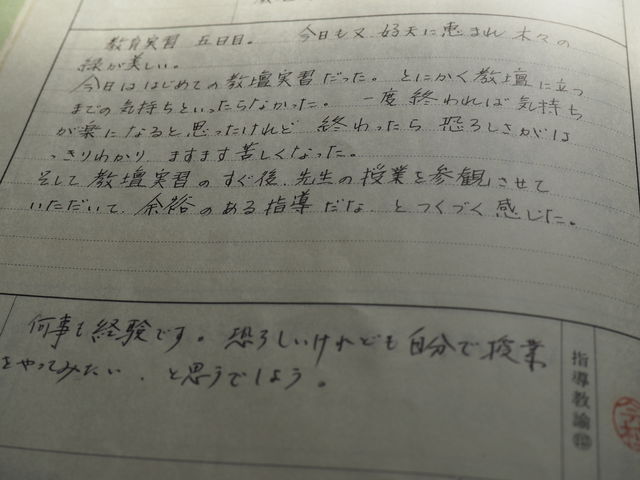 教育実習 五日目。 今日も又、好天に恵まれ木々の
緑が美しい。
今日ははじめての教壇実習だった。とにかく教壇に立つ
までの気持ちといったらなかった。一度終われば気持ち
が楽になると思ったけれど 終わったら 恐ろしさがは
っきりわかり、ますます苦しくなった。
そして教壇実習のすぐ後、先生の授業を参観させて
いただいて、余裕のある指導だな、とつくづく感じた。
何事も経験です。恐ろしいけれども自分で授業
をやってみたい、と思うでしょう。
指導教諭㊞